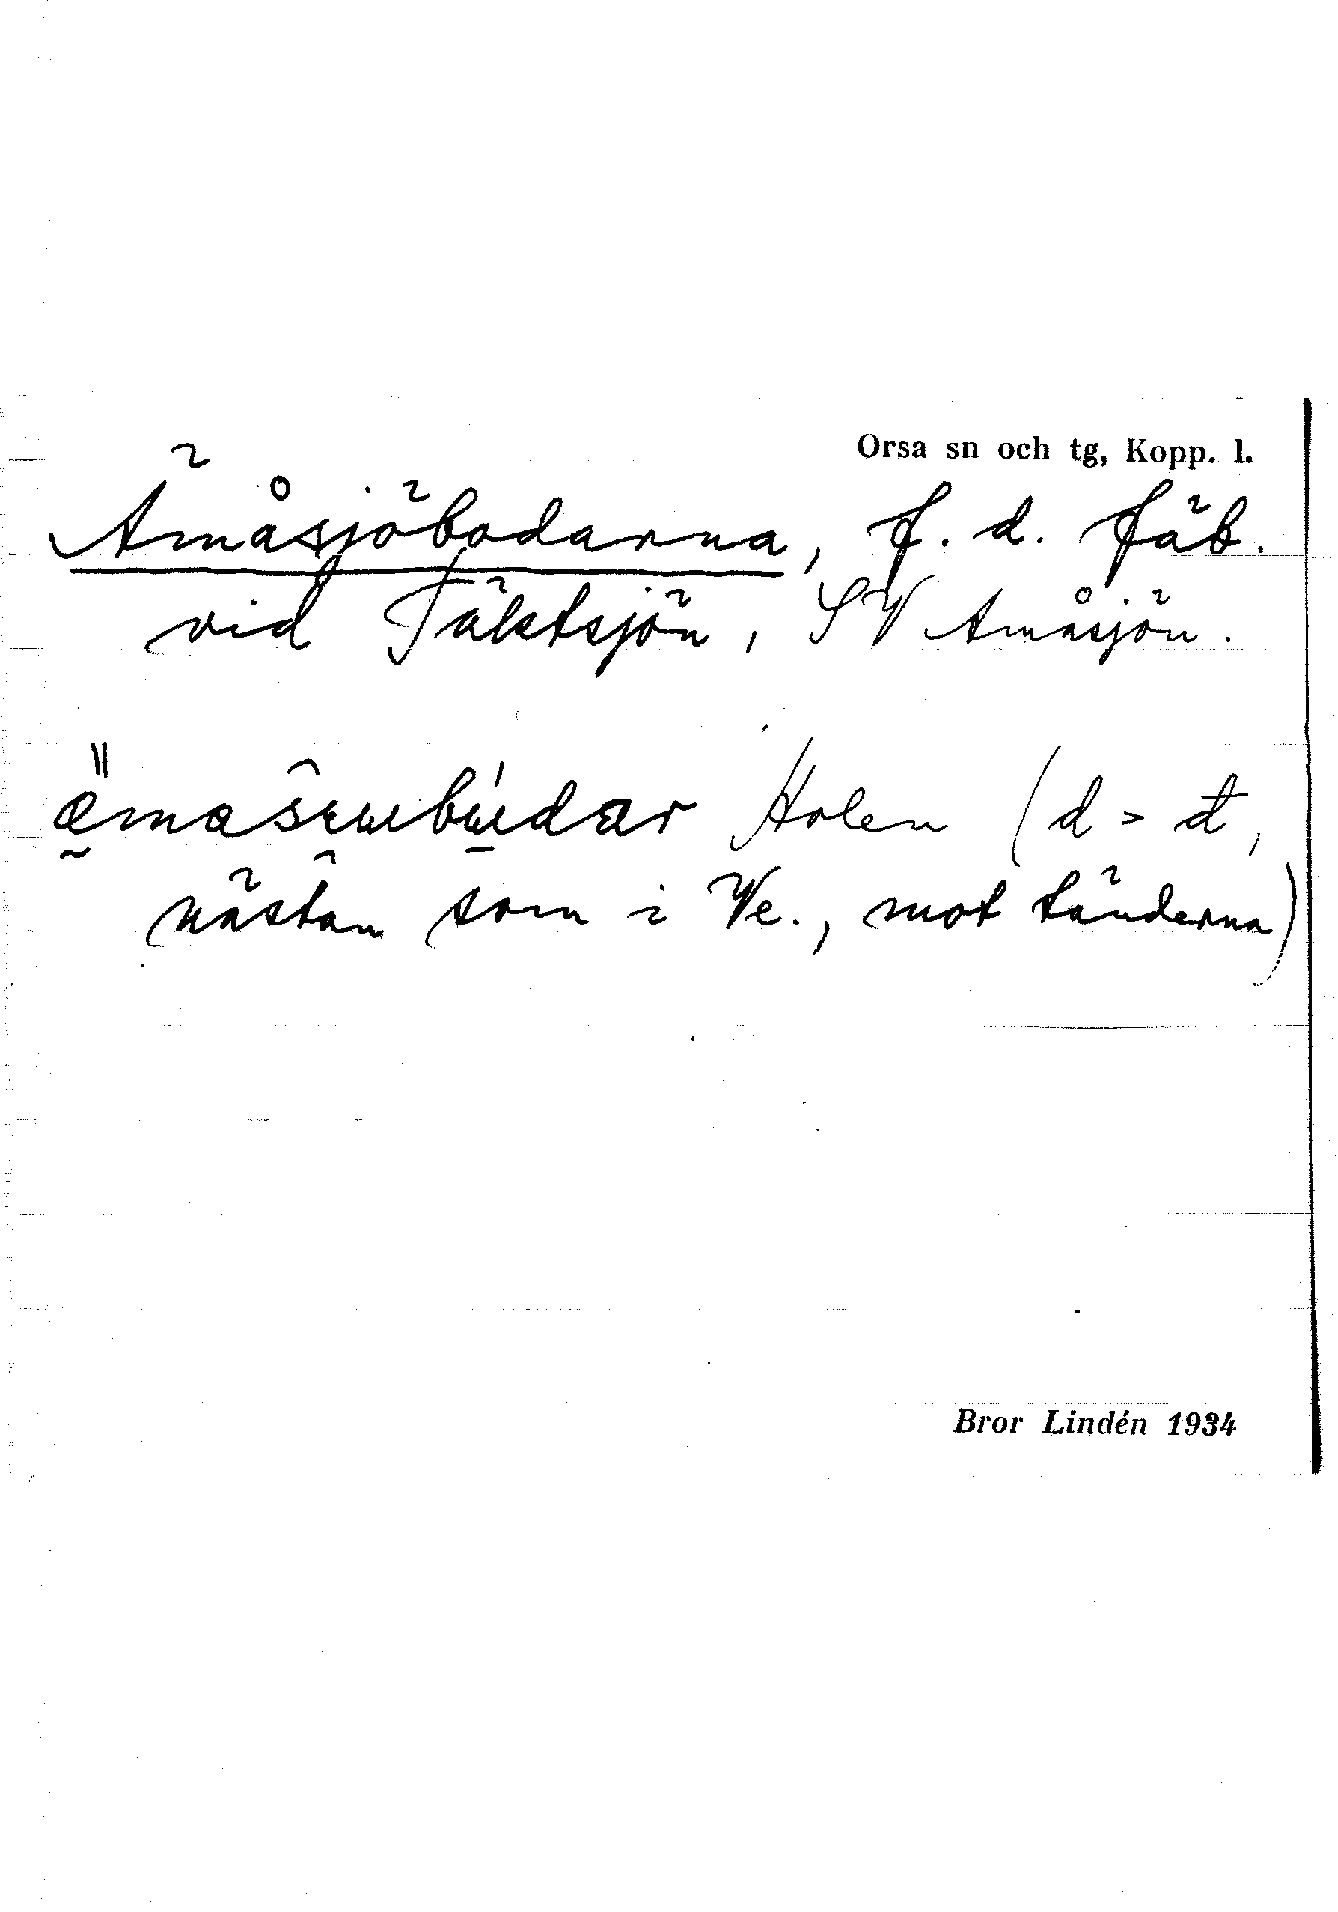 Orsa sn och tg, Kopp. l.
Ämåsjöbodarna, f. d. fäb.
vid Täktsjön, SV Amåsjön.
Holen (d > đ,
nästan som i Ve., mot tänderna)
Bror Lindén 1934